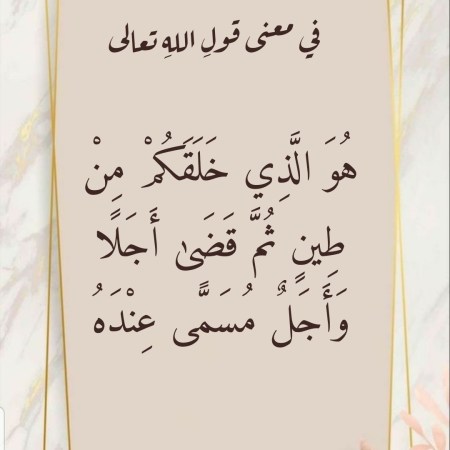 في معنى قولِ اللهِ تعالى
هُوَ الَّذِي خَلَقَكُمْ مِنْ
طِينٍ ثُمَّ قَضَىٰ أَجَلًا
وَأَجَلٌ مُسَمًّى عِنْدَهُ